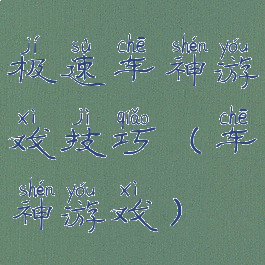 jí sù chē shén yóu
极速车神游
xì jì qiǎo chē
戏技巧（车
shén yóu xì
神游戏）